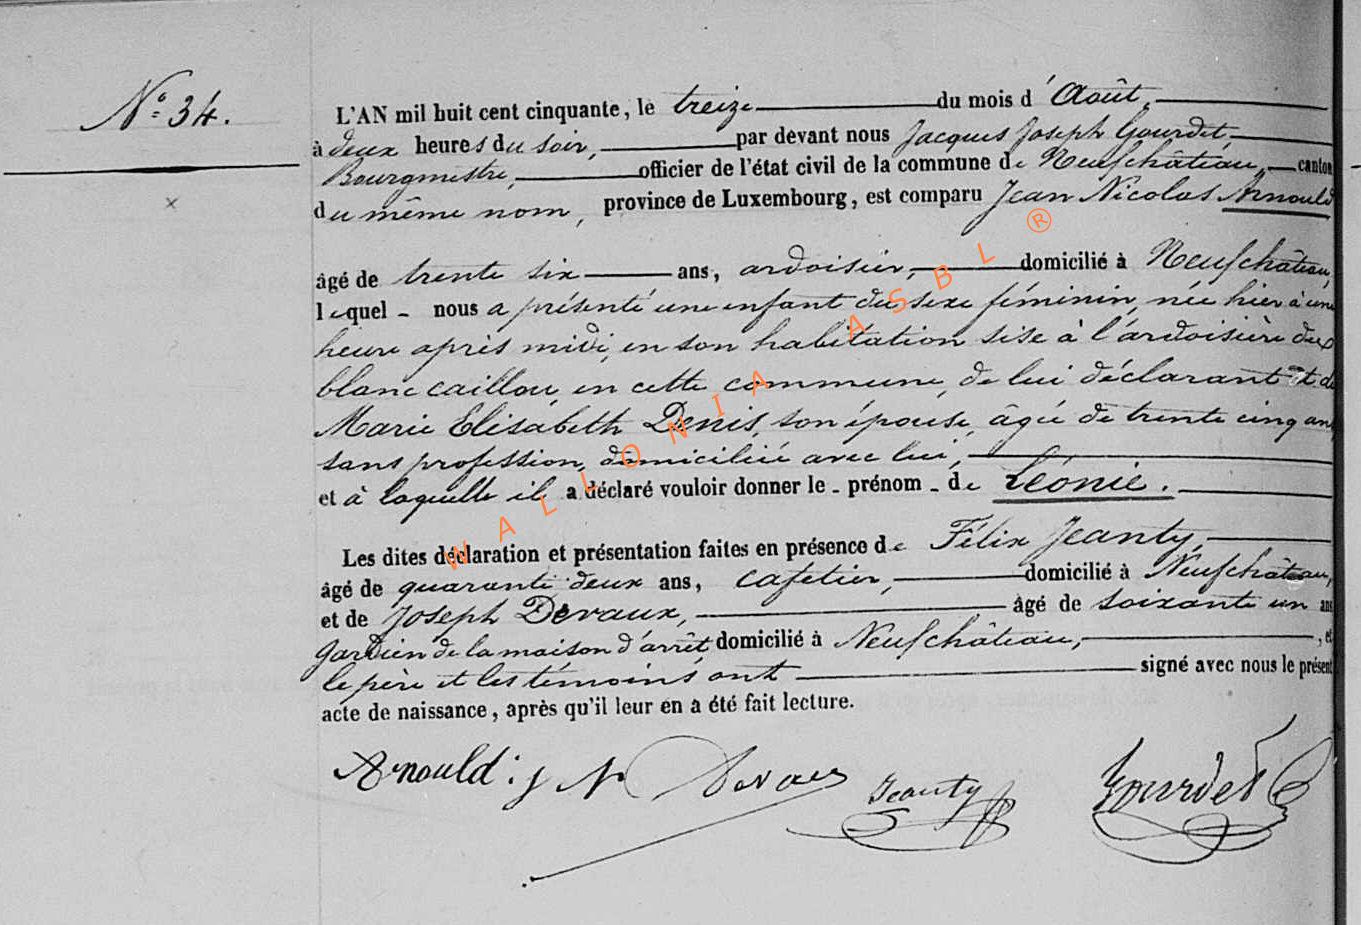 N° 34.
L'AN mil huit cent cinquante, le treize du mois d'Août,
à deux heures du soir, par devant nous Jacques Joseph Gourdet
Bourgmestre, officier de l'état civil de la commune de Neufchâteau, canton
du même nom, province de Luxembourg, est comparu Jean Nicolas Arnould
âgé de trente six ans, ardoisier, domicilié à Neufchâteau,
lequel - nous a présenté une enfant du sexe féminin, née hier à une
heure après midi, en son habitation sise à l'ardoisière du
blanc caillou, en cette commune, de lui déclarant et de
Marie Elisabeth Denis, son épouse, âgée de trente cinq ans
sans profession, domiciliée avec lui,
et à laquelle il a déclaré vouloir donner le - prénom - de Léonie.
Les dites déclaration et présentation faites en présence de Félix Jeanty,
âgé de quarante deux ans, cafetier, domicilié à Neufchâteau,
et de Joseph Devaux, âgé de soixante un ans
gardien de la maison d'arrêt, domicilié à Neufchâteau, , et
le père et les témoins ont signé avec nous le présent
acte de naissance, après qu'il leur en a été fait lecture.
Arnould : j N Devaux Jeanty Gourdet
WALLONIA ASBL ®